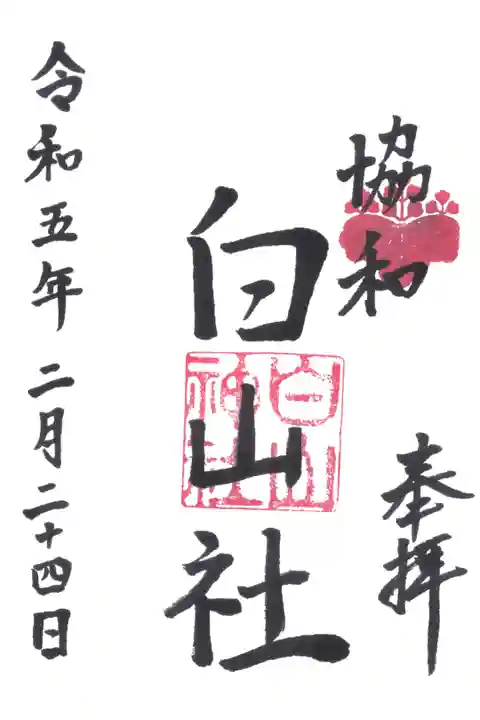 協和
奉拝
白山社
白山
神社
令和五年 二月二十四日